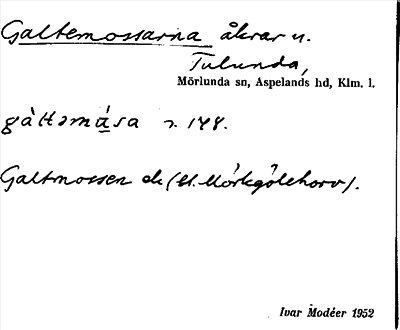 Galtemossarna åkrar u.
Tulunda,
Mörlunda sn, Aspelands hd, Klm. l.
gàltəmá̱sa n. 148.
Galtmossen ek (Ek. Mörkgölehorv).
Ivar Modéer 1952